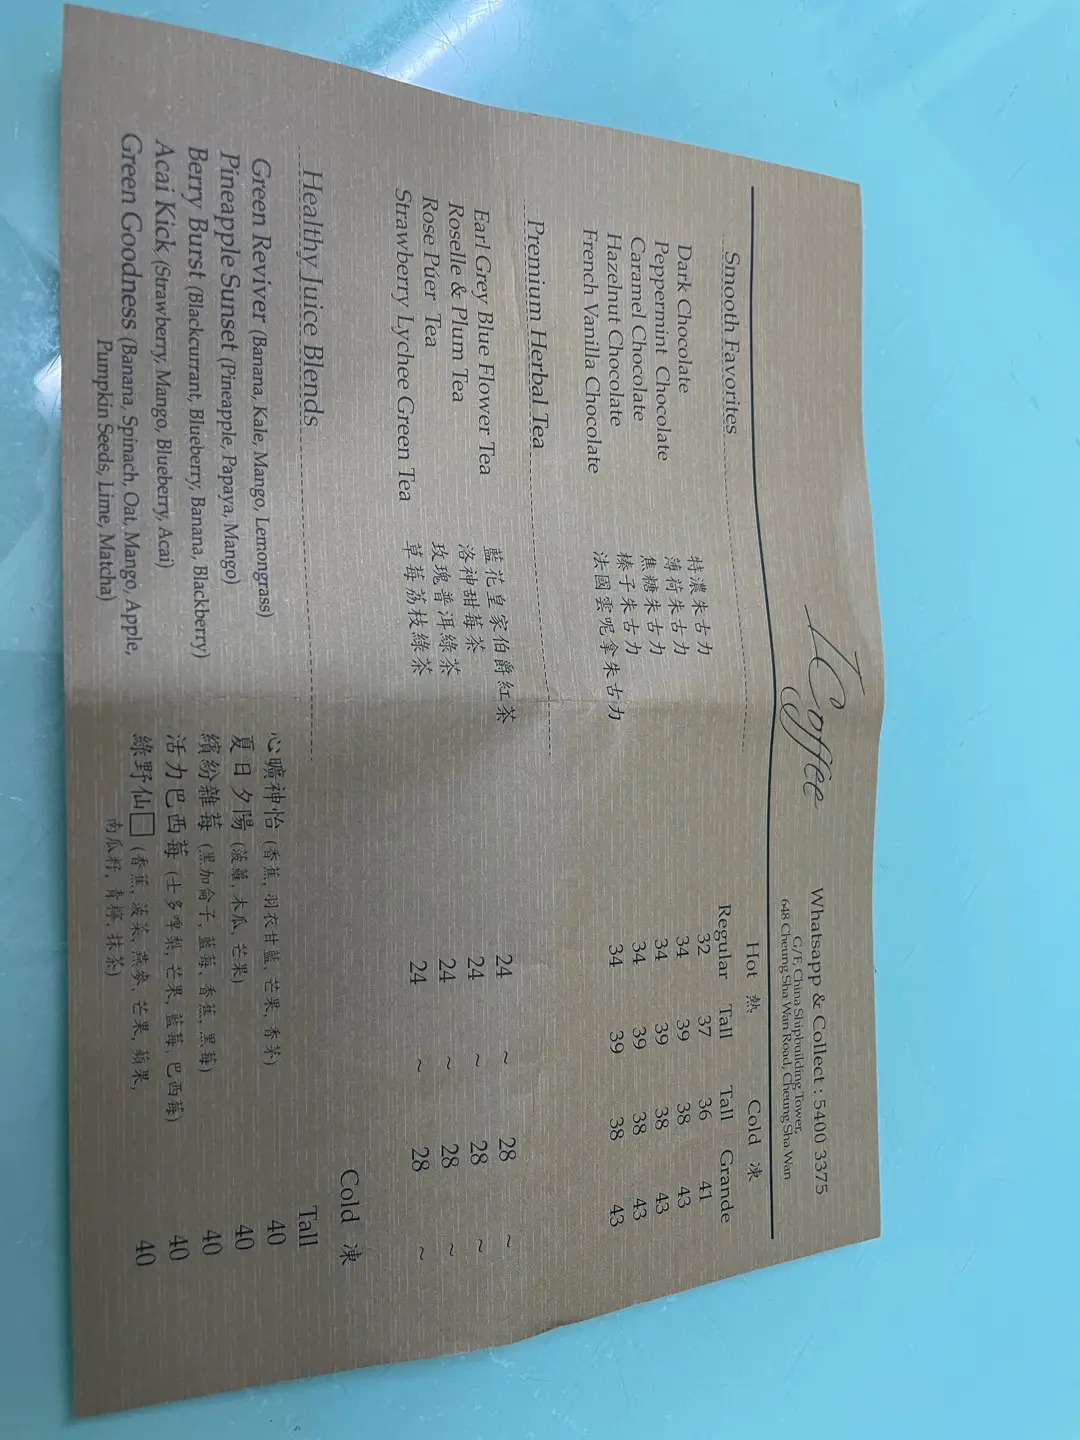 1Coffee
Whatsapp & Collect : 5400 3375
G/F, China Shipbuilding Tower,
648 Cheung Sha Wan Road, Cheung Sha Wan
Hot 熱 Cold 凍
Smooth Favorites Regular Tall Tall Grande
Dark Chocolate 特濃朱古力 32 37 36 41
Peppermint Chocolate 薄荷朱古力 34 39 38 43
Caramel Chocolate 焦糖朱古力 34 39 38 43
Hazelnut Chocolate 榛子朱古力 34 39 38 43
French Vanilla Chocolate 法國雲呢拿朱古力 34 39 38 43
Premium Herbal Tea
Earl Grey Blue Flower Tea 藍花皇家伯爵紅茶 24 ~ 28 ~
Roselle & Plum Tea 洛神甜莓茶 24 ~ 28 ~
Rose Púer Tea 玫瑰普洱綠茶 24 ~ 28 ~
Strawberry Lychee Green Tea 草莓荔枝綠茶 24 ~ 28 ~
Cold 凍
Healthy Juice Blends Tall
Green Reviver (Banana, Kale, Mango, Lemongrass) 心曠神怡 (香蕉, 羽衣甘藍, 芒果, 香茅) 40
Pineapple Sunset (Pineapple, Papaya, Mango) 夏日夕陽 (菠蘿, 木瓜, 芒果) 40
Berry Burst (Blackcurrant, Blueberry, Banana, Blackberry) 繽紛雜莓 (黑加侖子, 藍莓, 香蕉, 黑莓) 40
Acai Kick (Strawberry, Mango, Blueberry, Acai) 活力巴西莓 (士多啤梨, 芒果, 藍莓, 巴西莓) 40
Green Goodness (Banana, Spinach, Oat, Mango, Apple, 綠野仙□ (香蕉, 菠菜, 燕麥, 芒果, 蘋果, 40
Pumpkin Seeds, Lime, Matcha) 南瓜籽, 青檸, 抹茶)